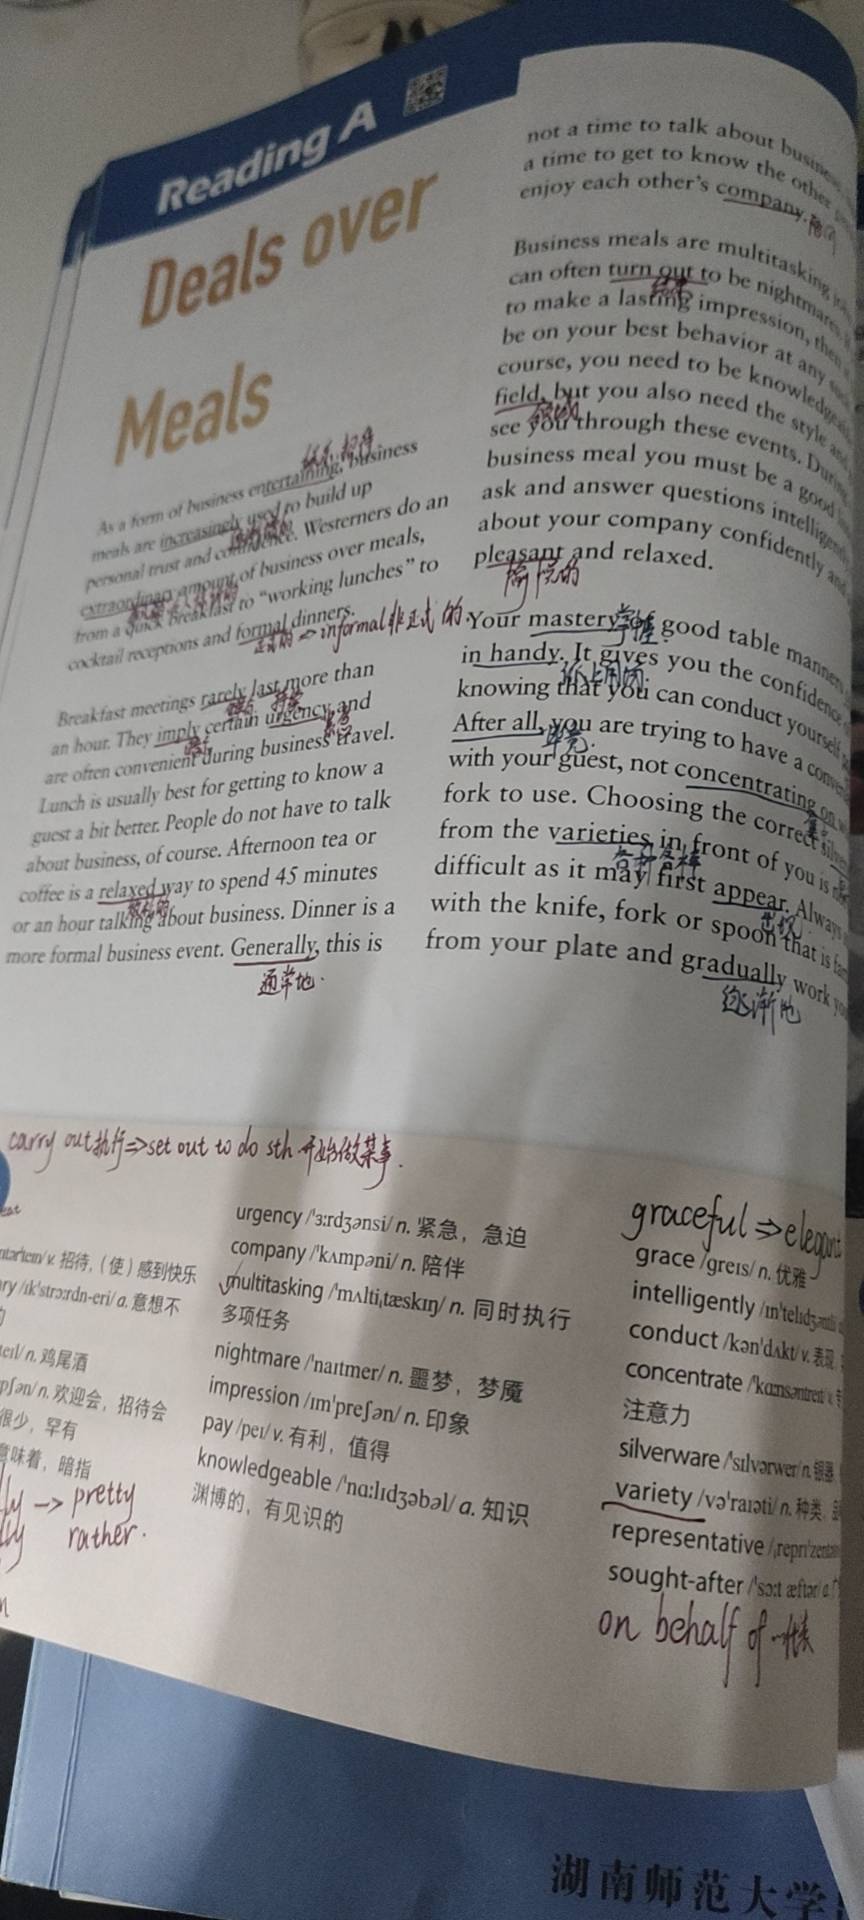 Reading A
Deals over
Meals
娱乐,招待
As a form of business entertaining, business
meals are increasingly used to build up
personal trust and confidence. Westerners do an
extraordinary amount of business over meals,
from a quick breakfast to “working lunches” to
cocktail receptions and formal dinners.
正式的 => informal 非正式的.
Breakfast meetings rarely last more than
an hour. They imply certain urgency and
紧急
are often convenient during business travel.
Lunch is usually best for getting to know a
guest a bit better. People do not have to talk
about business, of course. Afternoon tea or
coffee is a relaxed way to spend 45 minutes
放松的
or an hour talking about business. Dinner is a
more formal business event. Generally, this is
通常地.
not a time to talk about business
a time to get to know the other
enjoy each other's company.
Business meals are multitasking
can often turn out to be nightmares.
结果
to make a lasting impression, then
be on your best behavior at any
course, you need to be knowledgeable
field, but you also need the style and
领域
see you through these events. During
business meal you must be a good
ask and answer questions intelligently
about your company confidently and
pleasant and relaxed.
愉悦的
Your mastery of good table manners
掌握
in handy. It gives you the confidence
派上用场.
knowing that you can conduct yourself
After all, you are trying to have a
毕竟.
with your guest, not concentrating on
fork to use. Choosing the correct
from the varieties in front of you is
各种各样
difficult as it may first appear. Always
出现
with the knife, fork or spoon that is
from your plate and gradually work
逐渐地
carry out执行=>set out to do sth 开始做某事.
招待,(使)感到快乐
/ɪk'strɔ:rdn-eri/ a. 意想不
n. 鸡尾酒
n. 欢迎会,招待会
很少,罕有
意味着,暗指
-> pretty
rather.
urgency /'ɜ:rdʒənsi/ n. 紧急,急迫
company /'kʌmpəni/ n. 陪伴
multitasking /'mʌlti,tæskɪŋ/ n. 同时执行
多项任务
nightmare /'naɪtmer/ n. 噩梦,梦魇
impression /ɪm'preʃən/ n. 印象
pay /peɪ/ v. 有利,值得
knowledgeable /'nɑ:lɪdʒəbəl/ a. 知识
渊博的,有见识的
graceful => elegant
grace /greɪs/ n. 优雅
intelligently
conduct /kən'dʌkt/ v. 表现
concentrate
注意力
silverware /'sɪlvərwer/ n. 银器
variety /və'raɪəti/ n. 种类
representative
sought-after /'sɔ:t æftər/ a.
on behalf of 代表
湖南师范大学